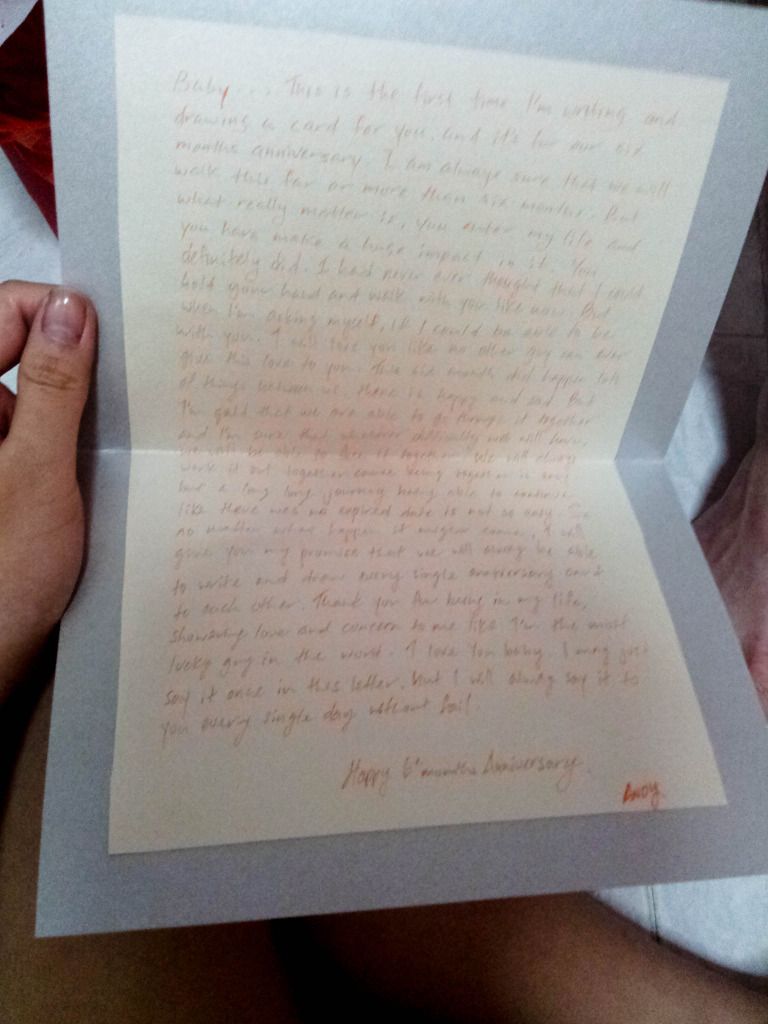 Baby... This is the first time I'm writing and
drawing a card for you, and it's for our six
months anniversary. I am always sure that we will
walk this far or more than six months. But
what really matter is, you enter my life and
you have make a huge impact in it. You
definitely did. I had never ever thought that I could
hold your hand and walk with you like now. But
when I'm asking myself, if I could be able to be
with you. I will love you like no other guy can ever
give this love to you. This six month did happen lots
of things between us. there is happy and sad. But
I'm gald that we are able to go through it together
and I'm sure that whatever difficulty we will have,
we will be able to it together. We will always
work it out together cause being together is easy
but a long long journey being able to continue
like there was no expired date is not so easy. So
no matter what happen it, I will
give you my promise that we will alway be able
to write and draw every single anniversary card
to each other. Thank you for being in my life,
showering love and concern to me like I'm the most
lucky guy in the world. I love you baby. I may just
say it once in this letter, but I will alway say it to
you every single day without fail.
Happy 6th months Anniversary.
Andy